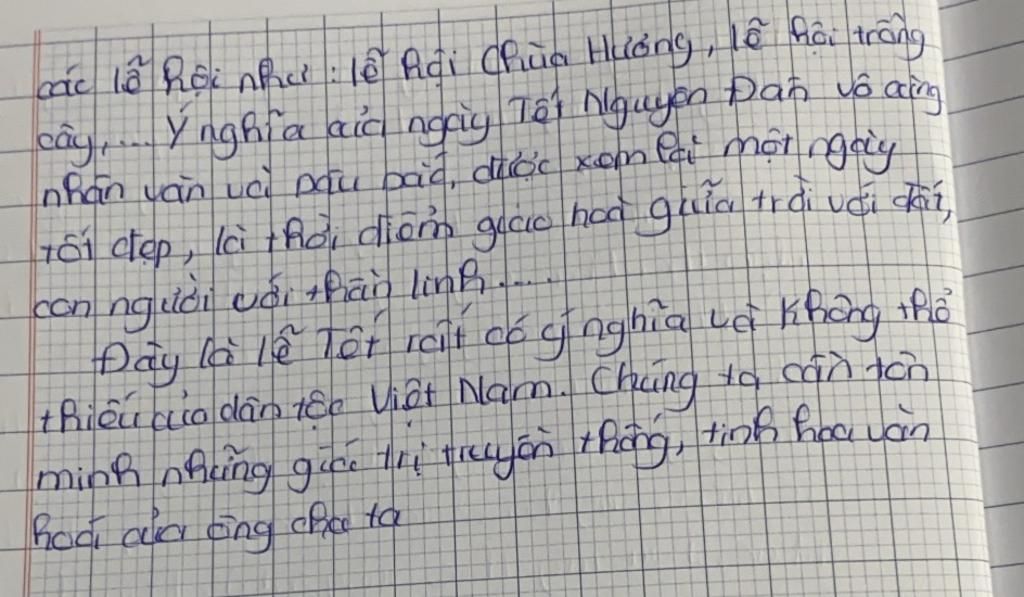 các lễ hội như: lễ hội Chùa Hương, lễ hội trồng
cây,... Ý nghĩa của ngày Tết Nguyên Đán vô cùng
nhân văn và sâu sắc, được xem là một ngày
tốt đẹp, là thời điểm giao hoà giữa trời với đất,
con người với thần linh.....
Đây là lễ Tết rất có ý nghĩa và không thể
thiếu của dân tộc Việt Nam. Chúng ta cần tôn
minh những giá trị truyền thống, tinh hoa văn
hoá của ông cha ta